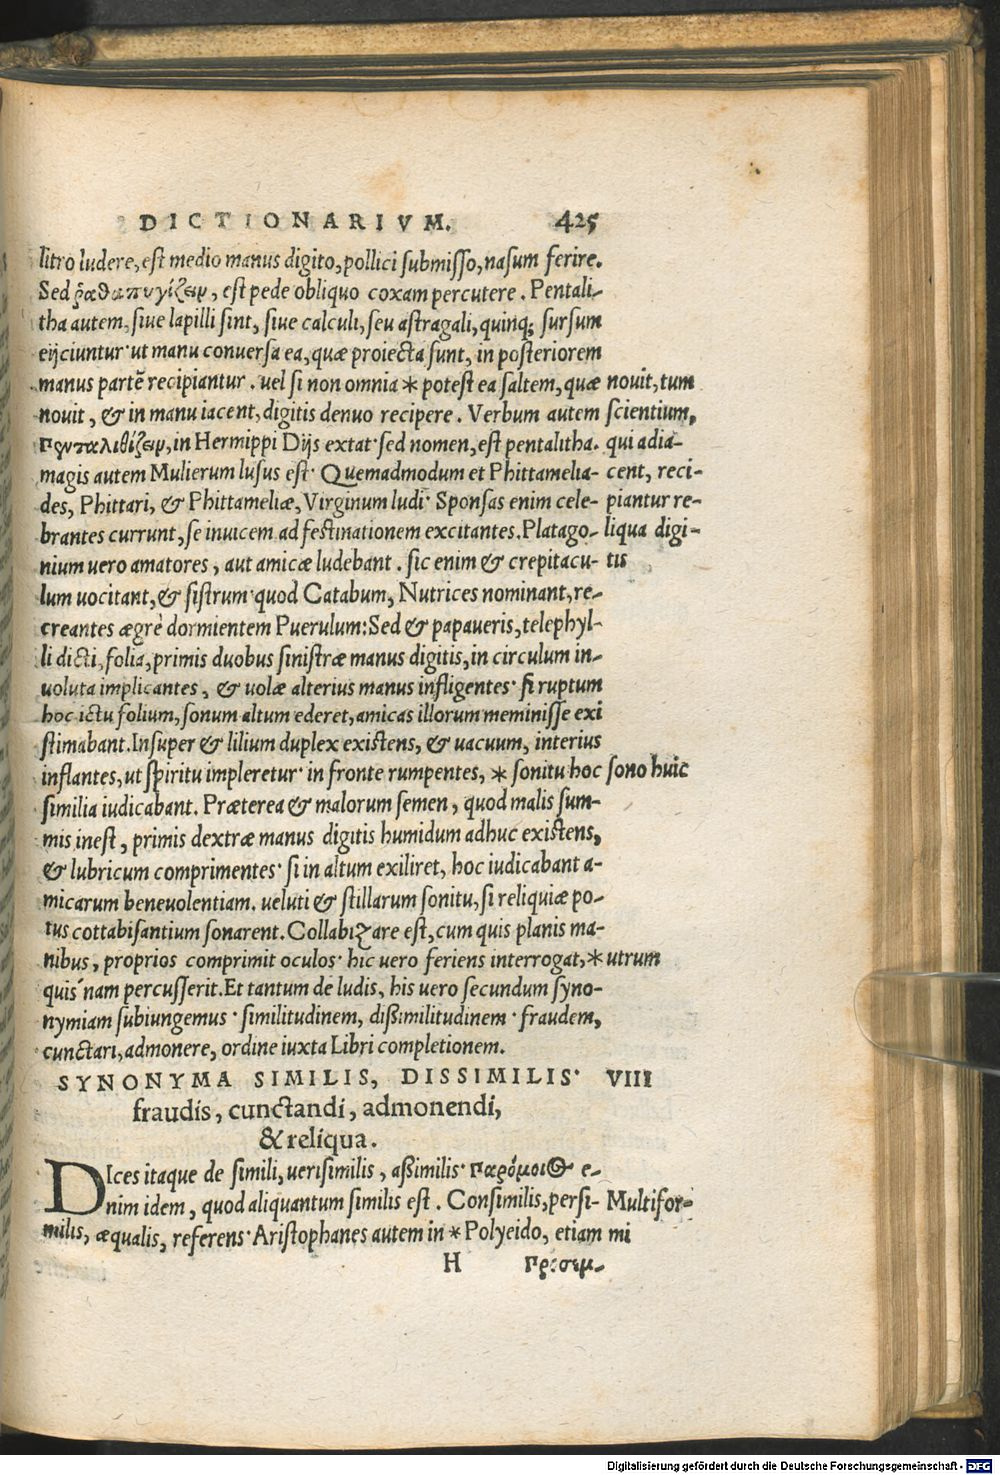 DICTIONARIVM. 425
litro ludere, est medio manus digito, pollici submisso, nasum ferire.
Sed ῥαθαπυγίζειν, est pede obliquo coxam percutere. Pentali-
tha autem, siue lapilli sint, siue calculi, seu astragali, quinq; sursum
eijciuntur· ut manu conuersa ea, quæ proiecta sunt, in posteriorem
manus partē recipiantur. uel si non omnia * potest ea saltem, quæ
nouit, & in manu iacent, digitis denuo recipere. Verbum autem
πενταλιθίζειν, in Hermippi Dijs extat· sed nomen, est pentalitha.
magis autem Mulierum lusus est· Quemadmodum et Phittamelia-
des, Phittari, & Phittameliæ, Virginum ludi· Sponsas enim cele-
brantes currunt, se inuicem ad festinationem excitantes. Platago-
nium uero amatores, aut amicæ ludebant. sic enim & crepitacu-
lum uocitant, & sistrum· quod Catabum, Nutrices nominant, re-
creantes ægrè dormientem Puerulum: Sed & papaueris, telephyl-
li dicti, folia, primis duobus sinistræ manus digitis, in circulum in-
uoluta implicantes, & uolæ alterius manus infligentes· si ruptum
hoc ictu folium, sonum altum ederet, amicas illorum meminisse exi
stimabant. Insuper & lilium duplex existens, & uacuum, interius
inflantes, ut spiritu impleretur· in fronte rumpentes, * sonitu hoc
similia iudicabant. Præterea & malorum semen, quod malis sum-
mis inest, primis dextræ manus digitis humidum adhuc existens,
& lubricum comprimentes· si in altum exiliret, hoc iudicabant a-
micarum beneuolentiam. ueluti & stillarum sonitu, si reliquiæ po-
tus cottabisantium sonarent. Collabizare est, cum quis planis ma-
nibus, proprios comprimit oculos· hic uero feriens interrogat, *
quis nam percusserit. Et tantum de ludis, his uero secundum syno-
nymiam subiungemus· similitudinem, dißimilitudinem· fraudem,
cunctari, admonere, ordine iuxta Libri completionem.
nouit, tum
scientium,
qui adia-
cent, reci-
piantur re-
liqua digi-
tis
sono huic
utrum
SYNONYMA SIMILIS, DISSIMILIS· VIII
fraudis, cunctandi, admonendi,
& reliqua.
DIces itaque de simili, uerisimilis, aßimilis· παρόμοιος e-
nim idem, quod aliquantum similis est. Consimilis, persi-
milis, æqualis, referens· Aristophanes autem in * Polyeido, etiam
Multifor-
mi
H
Digitalisierung gefördert durch die Deutsche Forschungsgemeinschaft - DFG